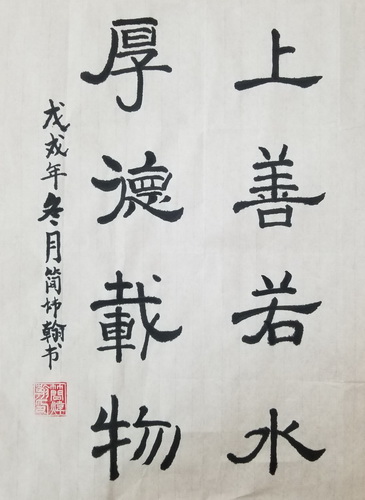 上善若水
厚德載物
戊戌年冬月简坤翰书